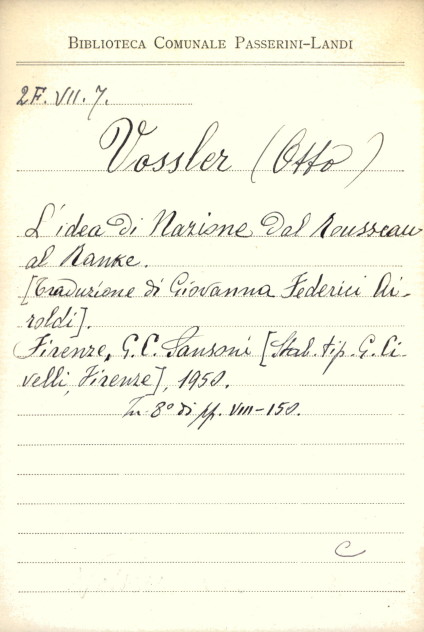 BIBLIOTECA COMUNALE PASSERINI-LANDI
2F. VII. 7.
Vossler (Otto)
L'idea di Nazione dal Rousseau
al Ranke.
[Traduzione di Giovanna Federici Ai-
roldi].
Firenze, G. C. Sansoni [Stab. tip. G. Ci-
velli, Firenze], 1950.
In 8º di pp. VIII-150.
C